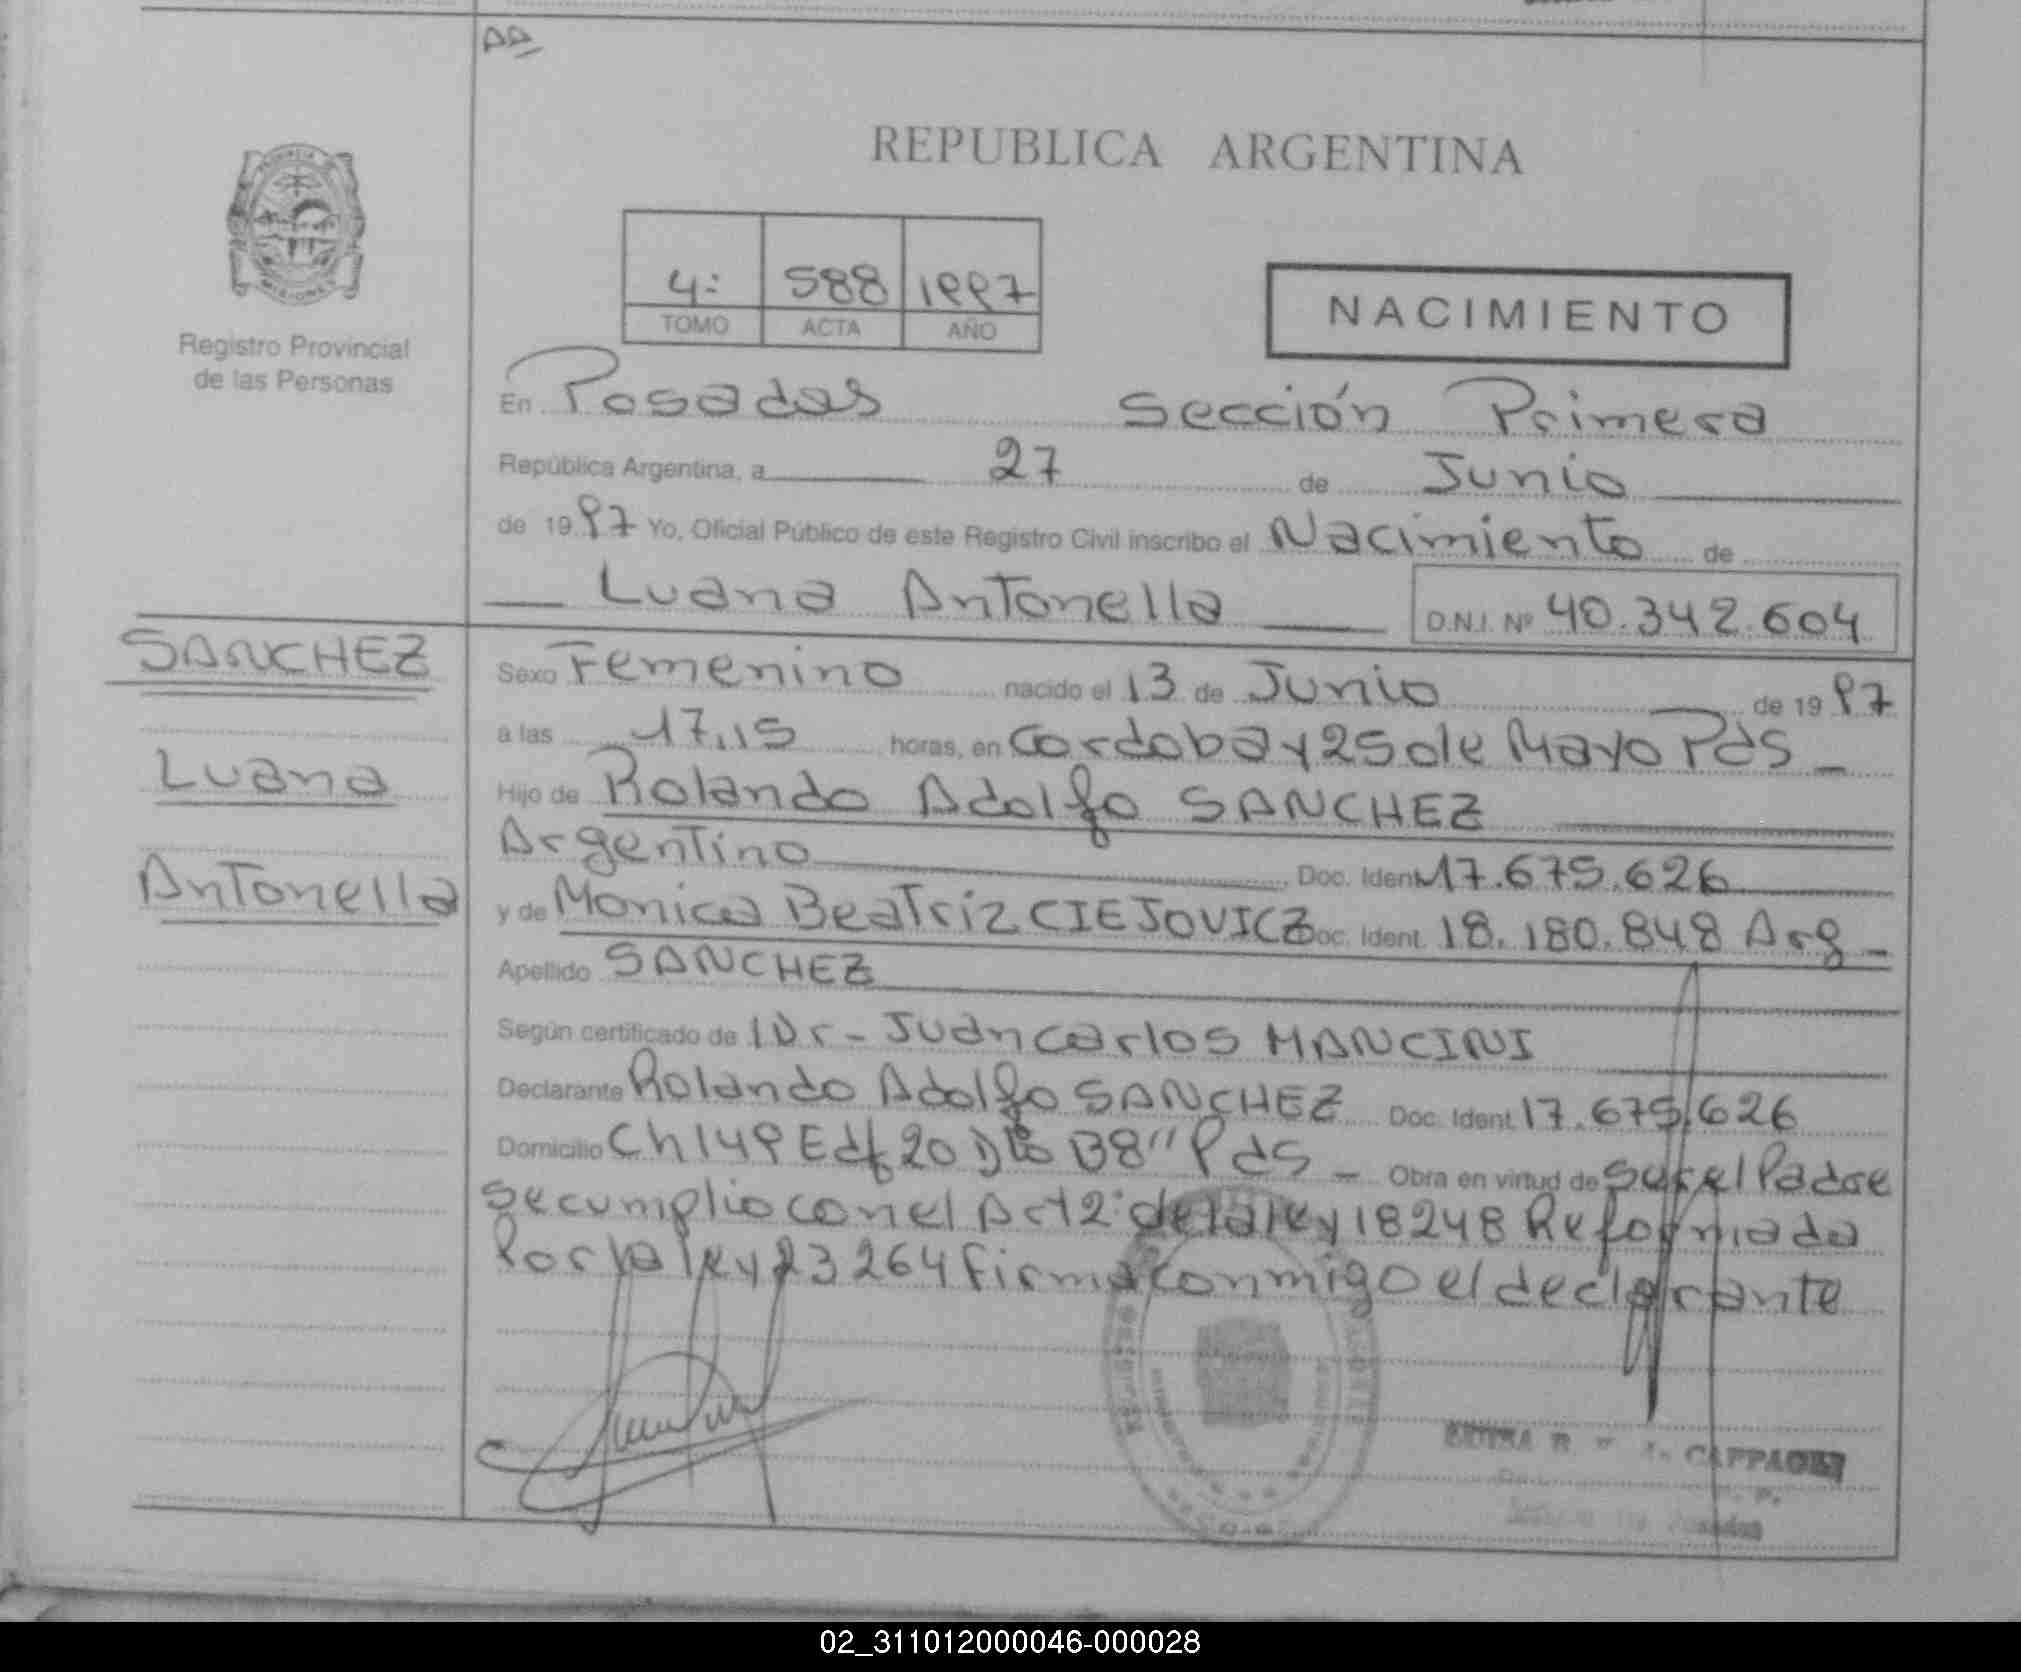 AA
REPUBLICA ARGENTINA
PROVINCIA DE
MISIONES
Registro Provincial
de las Personas
4: 588 1997
TOMO ACTA AÑO
NACIMIENTO
En Posadas Sección Primera
República Argentina, a 27 de Junio
de 1997 Yo, Oficial Público de este Registro Civil inscribo el Nacimiento de
Luana Antonella D.N.I. Nº 40.342.604
SANCHEZ
Luana
Antonella
Sexo Femenino nacido el 13 de Junio de 1997
a las 17,15 horas, en Cordoba y 25 de Mayo Pds _
Hijo de Rolando Adolfo SANCHEZ
Argentino Doc. Ident. 17.675.626
y de Monica Beatriz CIEJOVICZ Doc. Ident. 18.180.848 Arg _
Apellido SANCHEZ
Según certificado de Dr - Juan carlos MANCINI
Declarante Rolando Adolfo SANCHEZ Doc. Ident. 17.675.626
Domicilio Ch 149 Edf 20 Dto B8" Pds _ Obra en virtud de ser el Padre
se cumplio con el Art 2: de la ley 18248 Reformada
Por la ley 23264 firma conmigo el declarante
CAPPAGLI
Posadas
02_311012000046-000028